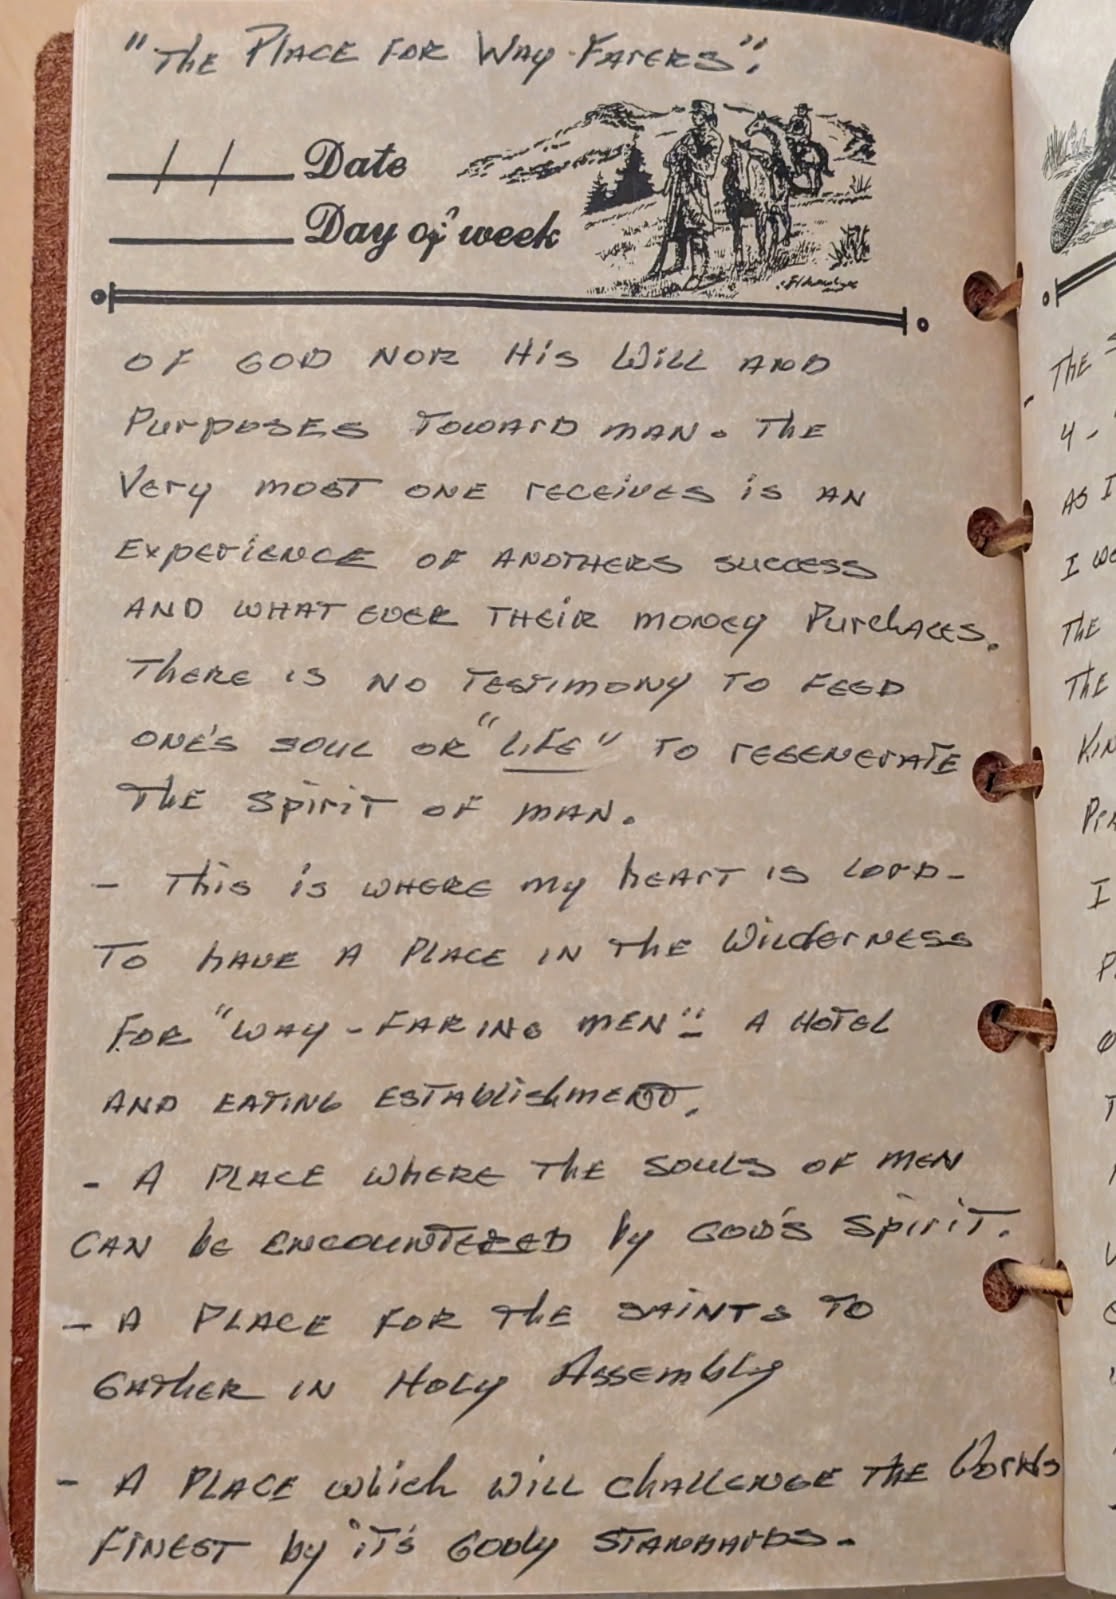 "The Place for Way-Farers".
/ / Date
Day of week
of God nor His Will and
Purposes toward man. The
Very most one receives is an
Experience of anothers success
and what ever their money Purchaces.
There is no testimony to feed
one's soul or "Life" to regenerate
The Spirit of man.
- This is where my heart is Lord-
To have a Place in the Wilderness
For "way-faring men" - a Hotel
and eating establishment.
- A Place where the souls of men
can be encountered by God's Spirit.
- A Place for the saints to
Gather in Holy Assembly
- A Place which will challenge the Worlds
Finest by it's Godly standards.
The
4-
as I
I we
The
The
Kin
I